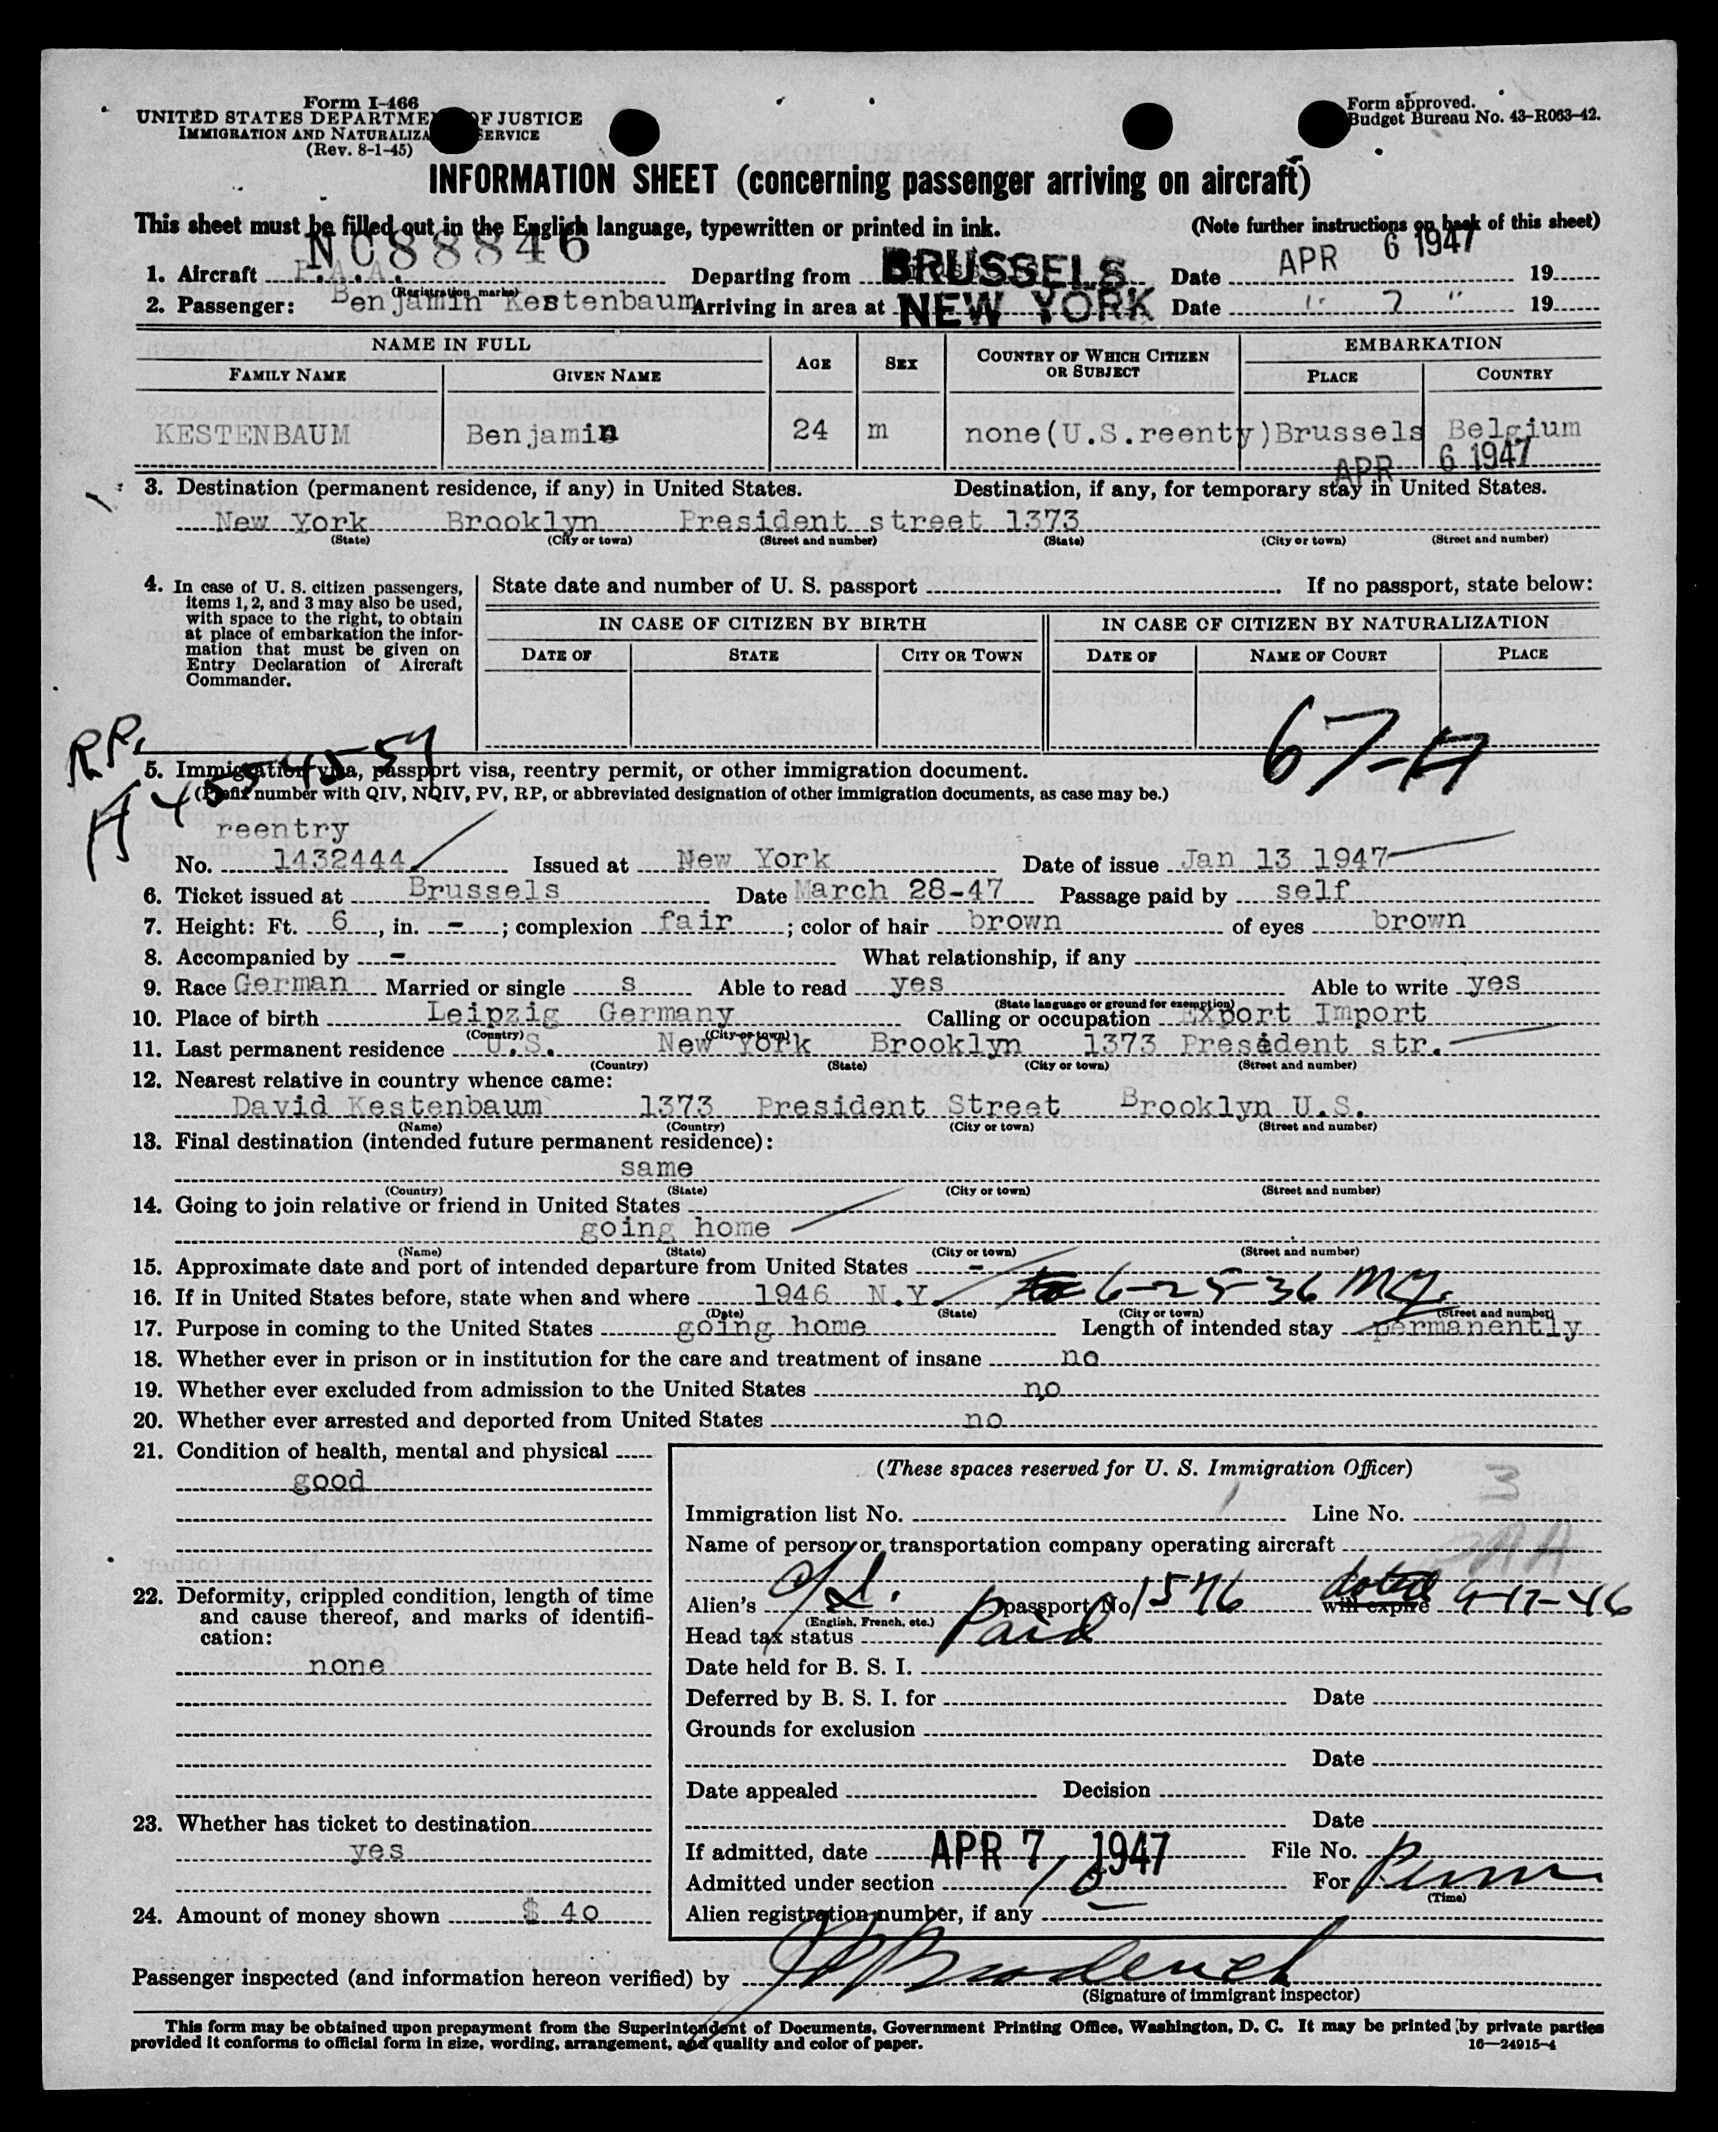 Form I-466
UNITED STATES DEPARTME OF JUSTICE
IMMIGRATION AND NATURALIZA SERVICE
(Rev. 8-1-45)
Form approved.
Budget Bureau No. 43-R063-42.
INFORMATION SHEET (concerning passenger arriving on aircraft)
This sheet must be filled out in the English language, typewritten or printed in ink. (Note further instructions on back of this sheet)
NC88846
1. Aircraft P.A.A. Departing from BRUSSELS Date APR 6 1947 19
(Registration marks)
2. Passenger: Benjamin Kestenbaum Arriving in area at NEW YORK Date " 7 " 19
NAME IN FULL AGE SEX COUNTRY OF WHICH CITIZEN OR SUBJECT EMBARKATION
FAMILY NAME GIVEN NAME PLACE COUNTRY
KESTENBAUM Benjamin 24 m none(U.S.reenty) Brussels Belgium
APR 6 1947
3. Destination (permanent residence, if any) in United States. Destination, if any, for temporary stay in United States.
New York Brooklyn President street 1373
(State) (City or town) (Street and number) (State) (City or town) (Street and number)
4. In case of U. S. citizen passengers, items 1, 2, and 3 may also be used, with space to the right, to obtain at place of embarkation the information that must be given on Entry Declaration of Aircraft Commander.
State date and number of U. S. passport If no passport, state below:
IN CASE OF CITIZEN BY BIRTH IN CASE OF CITIZEN BY NATURALIZATION
DATE OF STATE CITY OR TOWN DATE OF NAME OF COURT PLACE
RP. 67-H
5. Immigration visa, passport visa, reentry permit, or other immigration document.
(Prefix number with QIV, NQIV, PV, RP, or abbreviated designation of other immigration documents, as case may be.)
reentry
No. 1432444 Issued at New York Date of issue Jan 13 1947
6. Ticket issued at Brussels Date March 28-47 Passage paid by self
7. Height: Ft. 6, in. -; complexion fair; color of hair brown of eyes brown
8. Accompanied by - What relationship, if any
9. Race German Married or single s Able to read yes Able to write yes
(State language or ground for exemption)
10. Place of birth Leipzig Germany Calling or occupation Export Import
(Country) (City or town)
11. Last permanent residence U.S. New York Brooklyn 1373 President str.
(Country) (State) (City or town) (Street and number)
12. Nearest relative in country whence came:
David Kestenbaum 1373 President Street Brooklyn U.S.
(Name) (Country) (City or town) (Street and number)
13. Final destination (intended future permanent residence):
same
(Country) (State) (City or town) (Street and number)
14. Going to join relative or friend in United States
going home
(Name) (State) (City or town) (Street and number)
15. Approximate date and port of intended departure from United States -
16. If in United States before, state when and where 1946 N.Y. 6-25-36
(Date) (State) (City or town) (Street and number)
17. Purpose in coming to the United States going home Length of intended stay permanently
18. Whether ever in prison or in institution for the care and treatment of insane no
19. Whether ever excluded from admission to the United States no
20. Whether ever arrested and deported from United States no
21. Condition of health, mental and physical
good
22. Deformity, crippled condition, length of time and cause thereof, and marks of identification:
none
23. Whether has ticket to destination
yes
24. Amount of money shown $ 40
(These spaces reserved for U. S. Immigration Officer)
Immigration list No. 1 Line No. 3
Name of person or transportation company operating aircraft
Alien's passport No. 1576 will expire dated 4-17-46
(English, French, etc.)
Head tax status Paid
Date held for B. S. I.
Deferred by B. S. I. for Date
Grounds for exclusion
Date
Date appealed Decision
Date
If admitted, date APR 7 1947 File No.
Admitted under section For Perm
(Time)
Alien registration number, if any
Passenger inspected (and information hereon verified) by
(Signature of immigrant inspector)
This form may be obtained upon prepayment from the Superintendent of Documents, Government Printing Office, Washington, D. C. It may be printed by private parties
provided it conforms to official form in size, wording, arrangement, and quality and color of paper.
16—24915-4